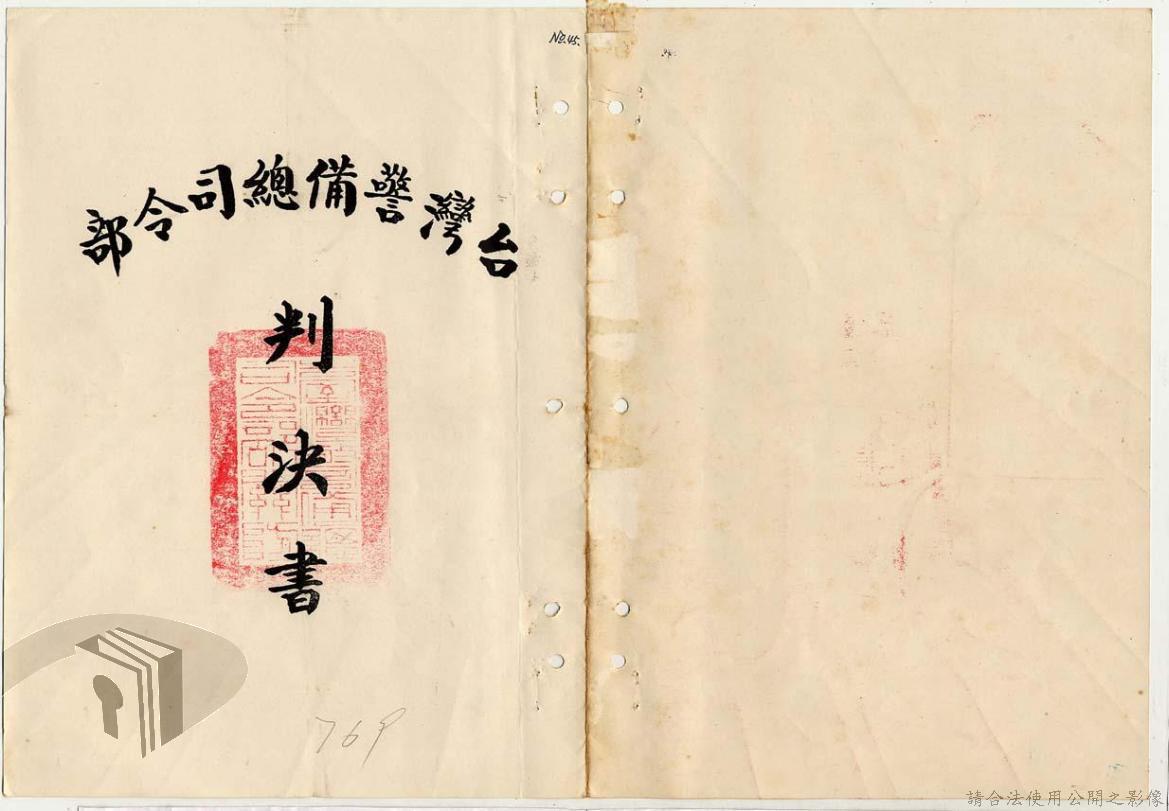 No.45.
台灣警備總司令部
判決書
769
請合法使用公開之影像